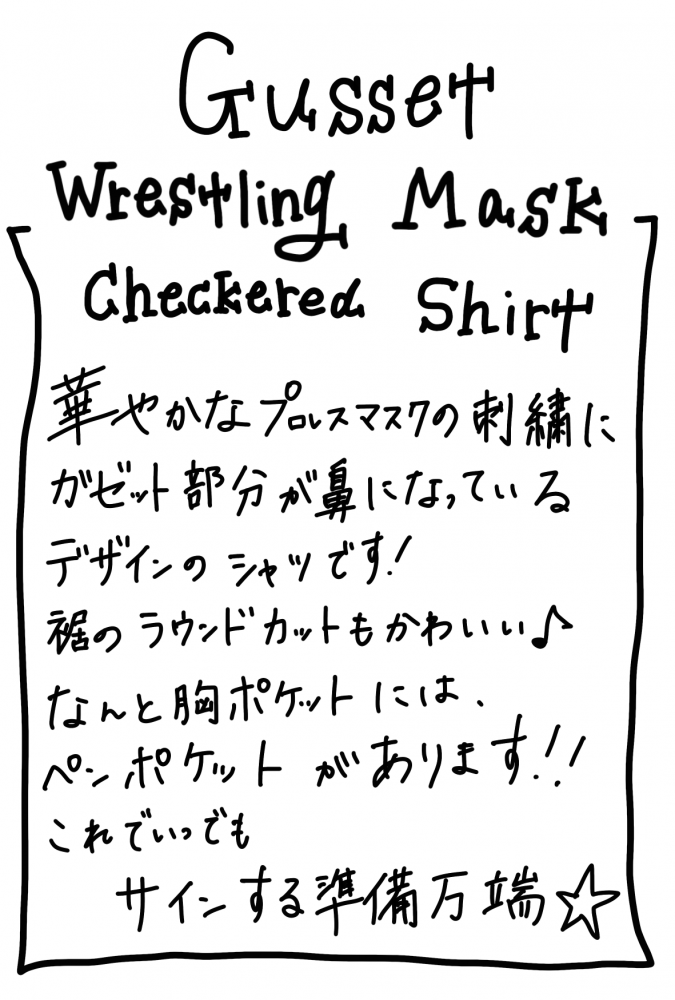 Gusset
Wrestling Mask
Checkered Shirt
華やかなプロレスマスクの刺繍に
ガゼット部分が鼻になっている
デザインのシャツです!
裾のラウンドカットもかわいい♪
なんと胸ポケットには、
ペンポケットがあります!!
これでいつでも
サインする準備万端☆